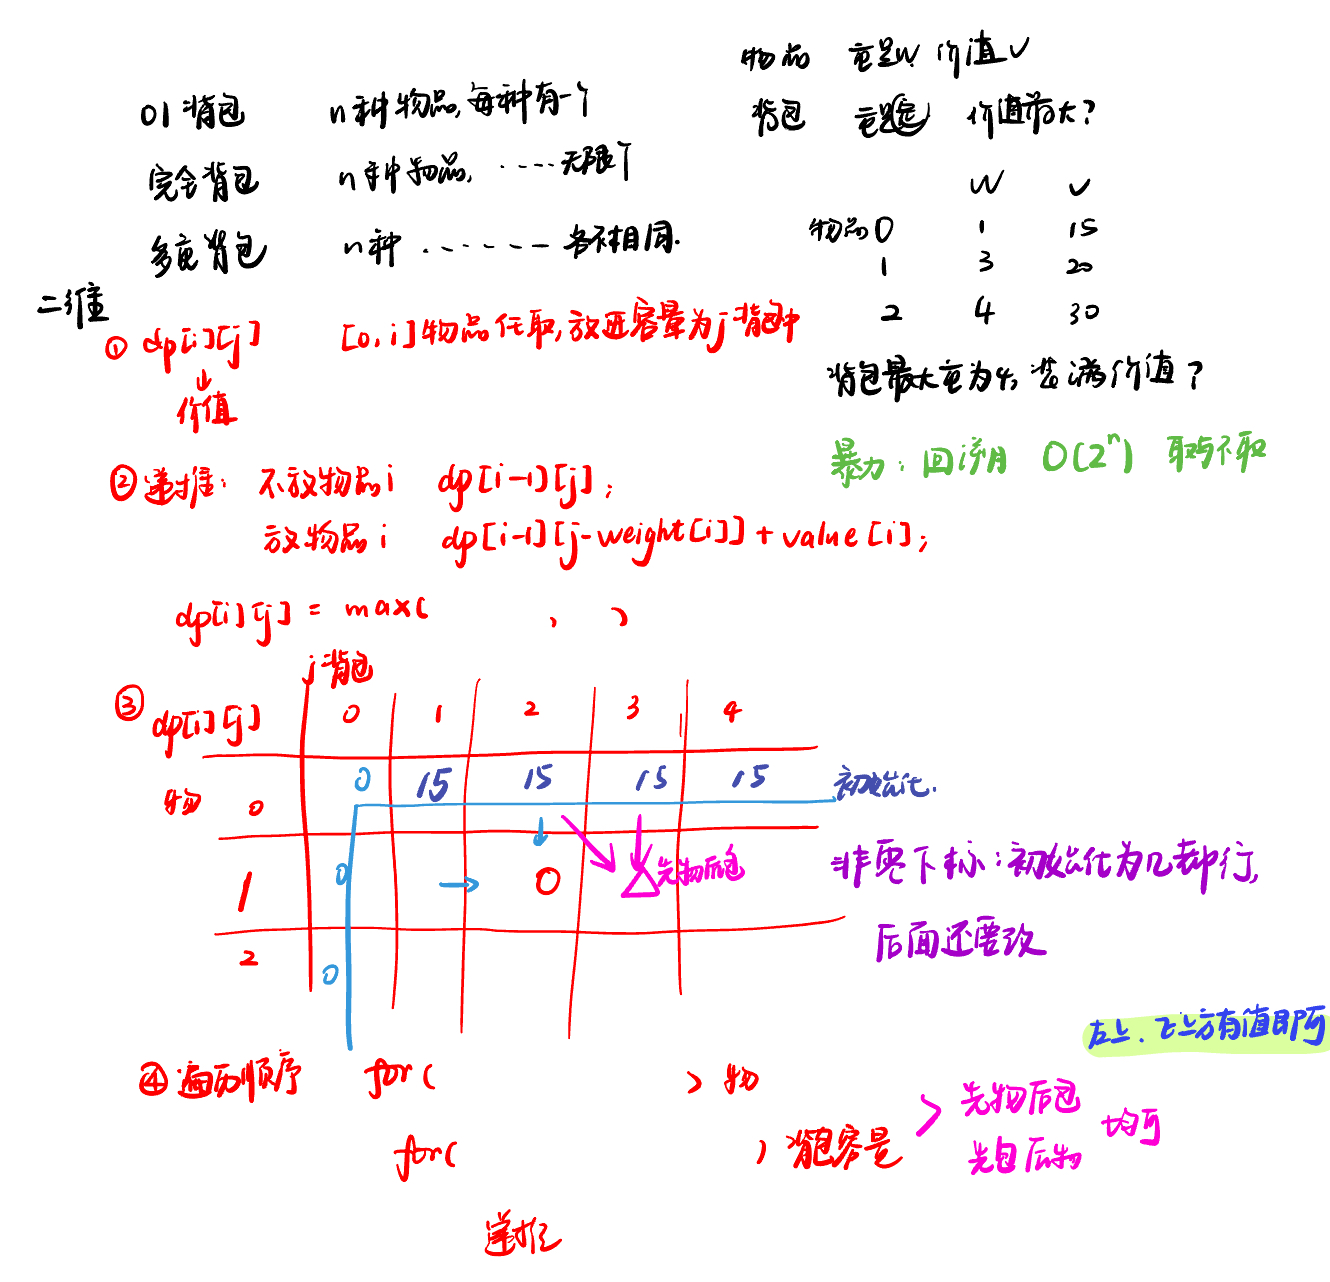 物品 重量W 价值V
背包 重量 价值最大?
01背包 n种物品,每种有一个
完全背包 n种物品, ……无限个
多重背包 n种 ……… 各不相同.
W V
物品0 1 15
1 3 20
2 4 30
背包最大重为4, 装满价值?
暴力: 回溯 O(2^n) 取与不取
二维
① dp[i][j] [0,i]物品任取,放进容量为j背包中
↓
价值
② 递推: 不放物品i dp[i-1][j];
放物品i dp[i-1][j-weight[i]]+value[i];
dp[i][j] = max( , )
j背包
③ dp[i][j] 0 1 2 3 4
物 0 0 15 15 15 15 初始化.
1 0 → 0 △ 先物后包
2 0
非零下标:初始化为几都行,
后面还要改
左上、正上方有值即可
④ 遍历顺序 for( ) 物
for( ) 背包容量
> 先物后包
先包后物 均可
递推